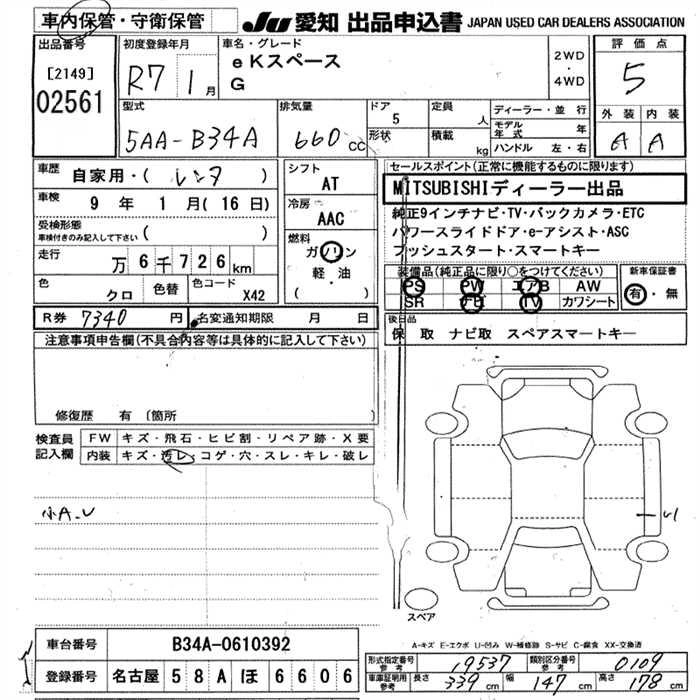 車内保管・守衛保管
JU 愛知 出品申込書 JAPAN USED CAR DEALERS ASSOCIATION
出品番号
[2149]
02561
初度登録年月
R7年 1月
車名・グレード
eKスペース
G
2WD
・
4WD
評価点
5
外装 内装
A A
型式
5AA-B34A
排気量
660 CC
ドア
5
形状
定員
人
積載
kg
ディーラー・並行
モデル年式 年
ハンドル 左・右
車歴
自家用・( レンタ )
車検
9年 1月(16日)
受検形態
車検付きのみ記入して下さい ( )
走行
万6千726km
色
クロ
色替
色コード
X42
シフト
AT
冷房
AAC
燃料
ガソリン
軽・油
( )
セールスポイント(正常に機能するものに限ります)
MITSUBISHIディーラー出品
純正9インチナビ・TV・バックカメラ・ETC
パワースライドドア・e-アシスト・ASC
プッシュスタート・スマートキー
装備品(純正品に限り○をつけてください)
PS PW エアB AW
SR ナビ TV カワシート
新車保証書
有・無
R券 7340円
名変通知期限 月 日
後日品
保 取 ナビ取 スペアスマートキー
注意事項申告欄(不具合内容等は具体的に記入して下さい)
修復歴 有 〔箇所
検査員記入欄
FW キズ・飛石・ヒビ割・リペア跡・X要
内装 キズ・汚レ・コゲ・穴・スレ・キレ・破レ
小A、U
スペア
A-キズ E-エクボ U-凹み W-補修跡 S-サビ C-腐食 XX-交換済
車台番号
B34A-0610392
登録番号
名古屋 58A ほ 6606
形式指定番号
参考
19537
類別区分番号
参考
0109
車庫証明用
参考
長さ 339cm 幅 147cm 高さ 178cm